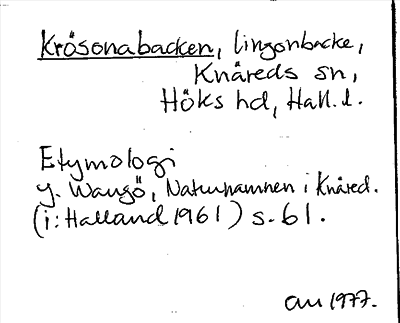 Krösonabacken, lingonbacke,
Knäreds sn,
Höks hd, Hall. l.
Etymologi
y. Wangö, Naturnamnen i Knäred.
(i: Halland 1961) s. 61.
au 1977.